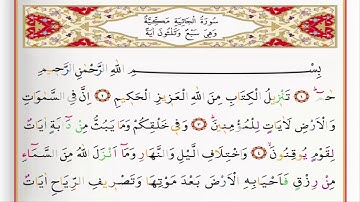 سُورَةُ الْجَاثِيَةِ مَكِّيَّةٌ
وَهِيَ سَبْعٌ وَثَلٰثُونَ اٰيَةً
بِسْمِ اللّٰهِ الرَّحْمٰنِ الرَّحِيمِ
حٰمٓ ﴿١﴾ تَنْزِيلُ الْكِتَابِ مِنَ اللّٰهِ الْعَزِيزِ الْحَكِيمِ ﴿٢﴾ اِنَّ فِي السَّمٰوَاتِ
وَالْاَرْضِ لَاٰيَاتٍ لِلْمُؤْمِنِينَ ﴿٣﴾ وَفِي خَلْقِكُمْ وَمَا يَبُثُّ مِنْ دَٓابَّةٍ اٰيَاتٌ
لِقَوْمٍ يُوقِنُونَ ﴿٤﴾ وَاخْتِلَافِ الَّيْلِ وَالنَّهَارِ وَمَٓا اَنْزَلَ اللّٰهُ مِنَ السَّمَٓاءِ
مِنْ رِزْقٍ فَاَحْيَا بِهِ الْاَرْضَ بَعْدَ مَوْتِهَا وَتَصْرِيفِ الرِّيَاحِ اٰيَاتٌ